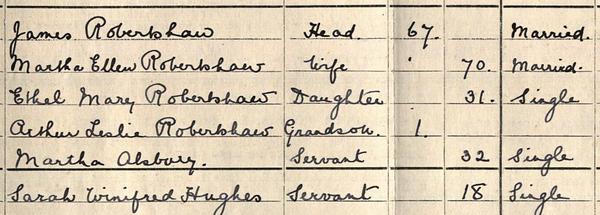 James Robertshaw Head. 67. Married.
Martha Ellen Robertshaw Wife 70. Married.
Ethel Mary Robertshaw Daughter 31. Single
Arthur Leslie Robertshaw Grandson. 1.
Martha Alsbury. Servant 32 Single
Sarah Winifred Hughes Servant 18 Single